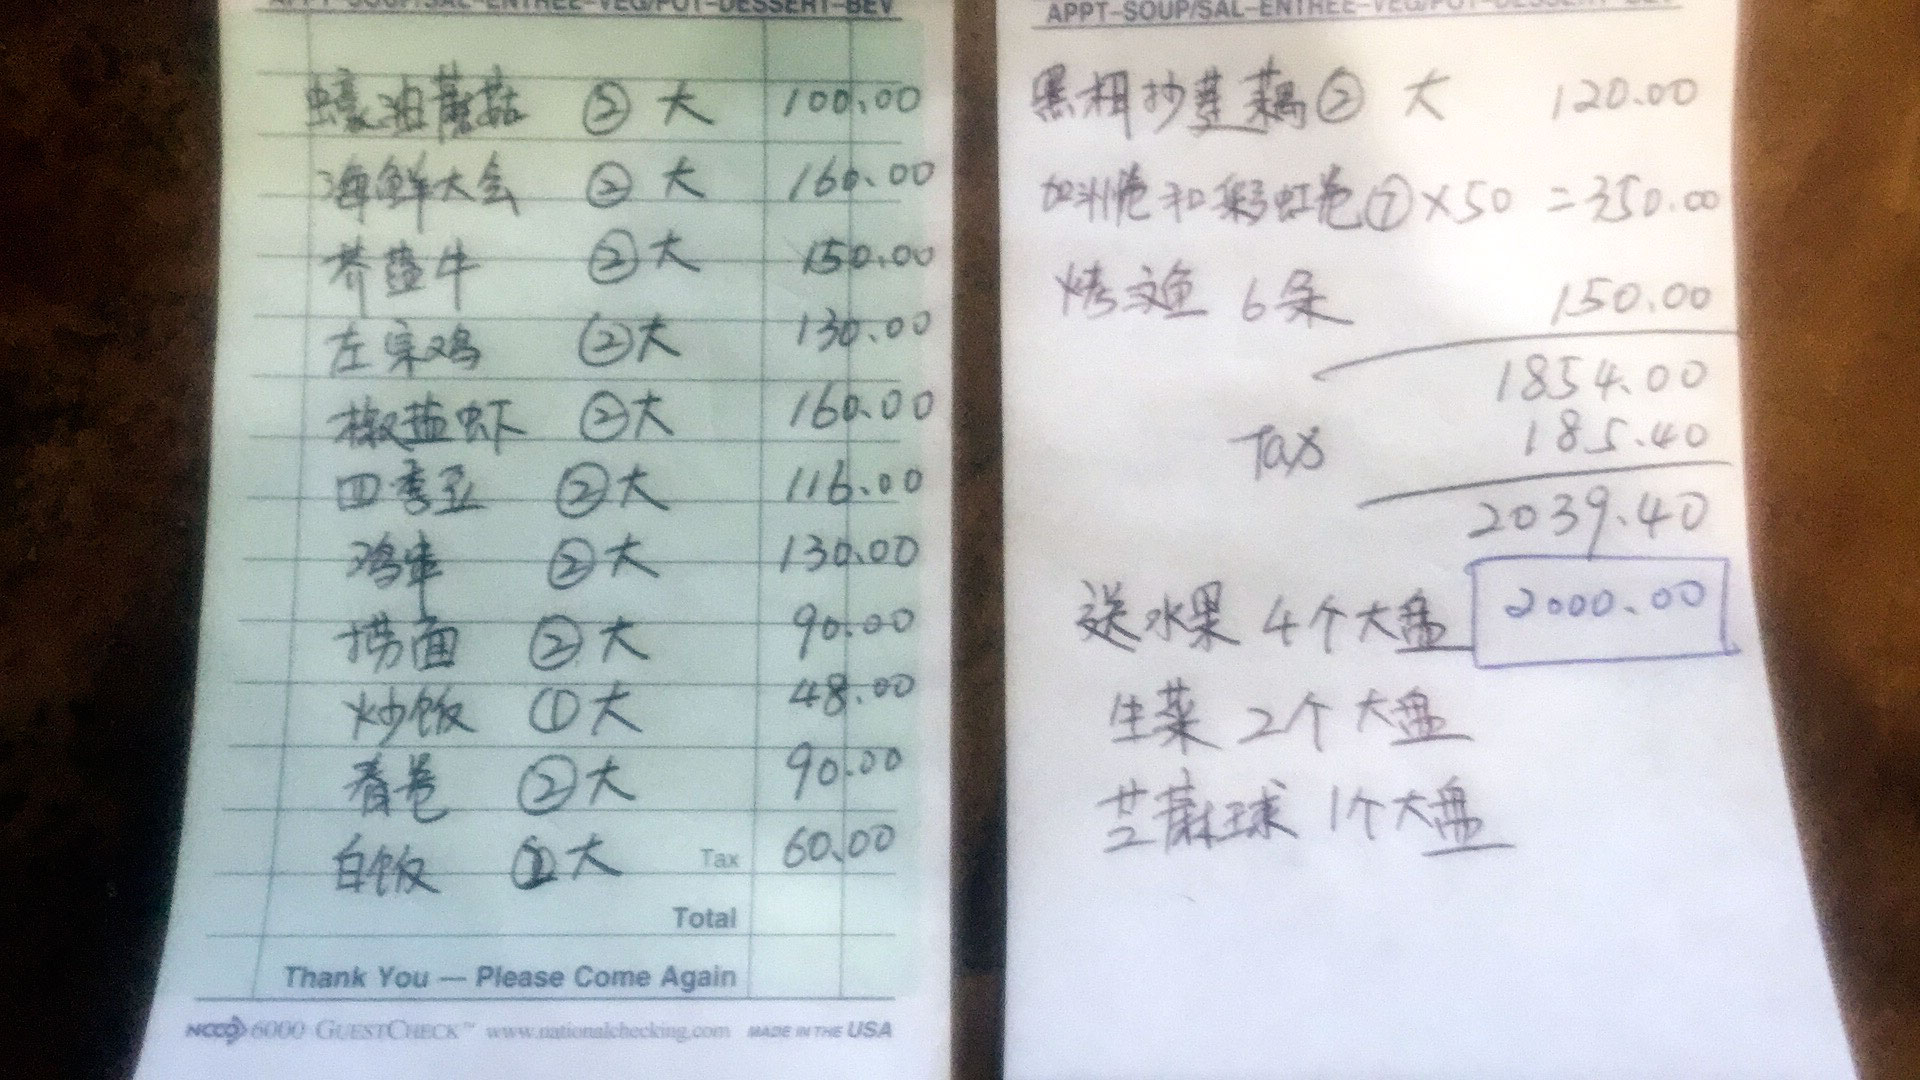 APPT-SOUP/SAL-ENTREE-VEG/POT-DESSERT-BEV
蠔油蘑菇 ② 大 100.00
海鲜大会 ② 大 160.00
芥蓝牛 ② 大 150.00
左宗鸡 ② 大 130.00
椒盐虾 ② 大 160.00
四季豆 ② 大 116.00
鸡串 ② 大 130.00
捞面 ② 大 90.00
炒饭 ① 大 48.00
春卷 ② 大 90.00
白饭 大 60.00
Tax
Total
Thank You — Please Come Again
NCCO 6000 GUESTCHECK™ www.nationalchecking.com MADE IN THE USA
APPT-SOUP/SAL-ENTREE-VEG/POT-DESSERT-BEV
黑椒抄莲藕 ② 大 120.00
加洲卷和彩虹卷 ⑦ ×50 =350.00
烤鱼 6条 150.00
1854.00
Tax 185.40
2039.40
送水果 4个大盘 2000.00
生菜 2个大盘
芝蔴球 1个大盘